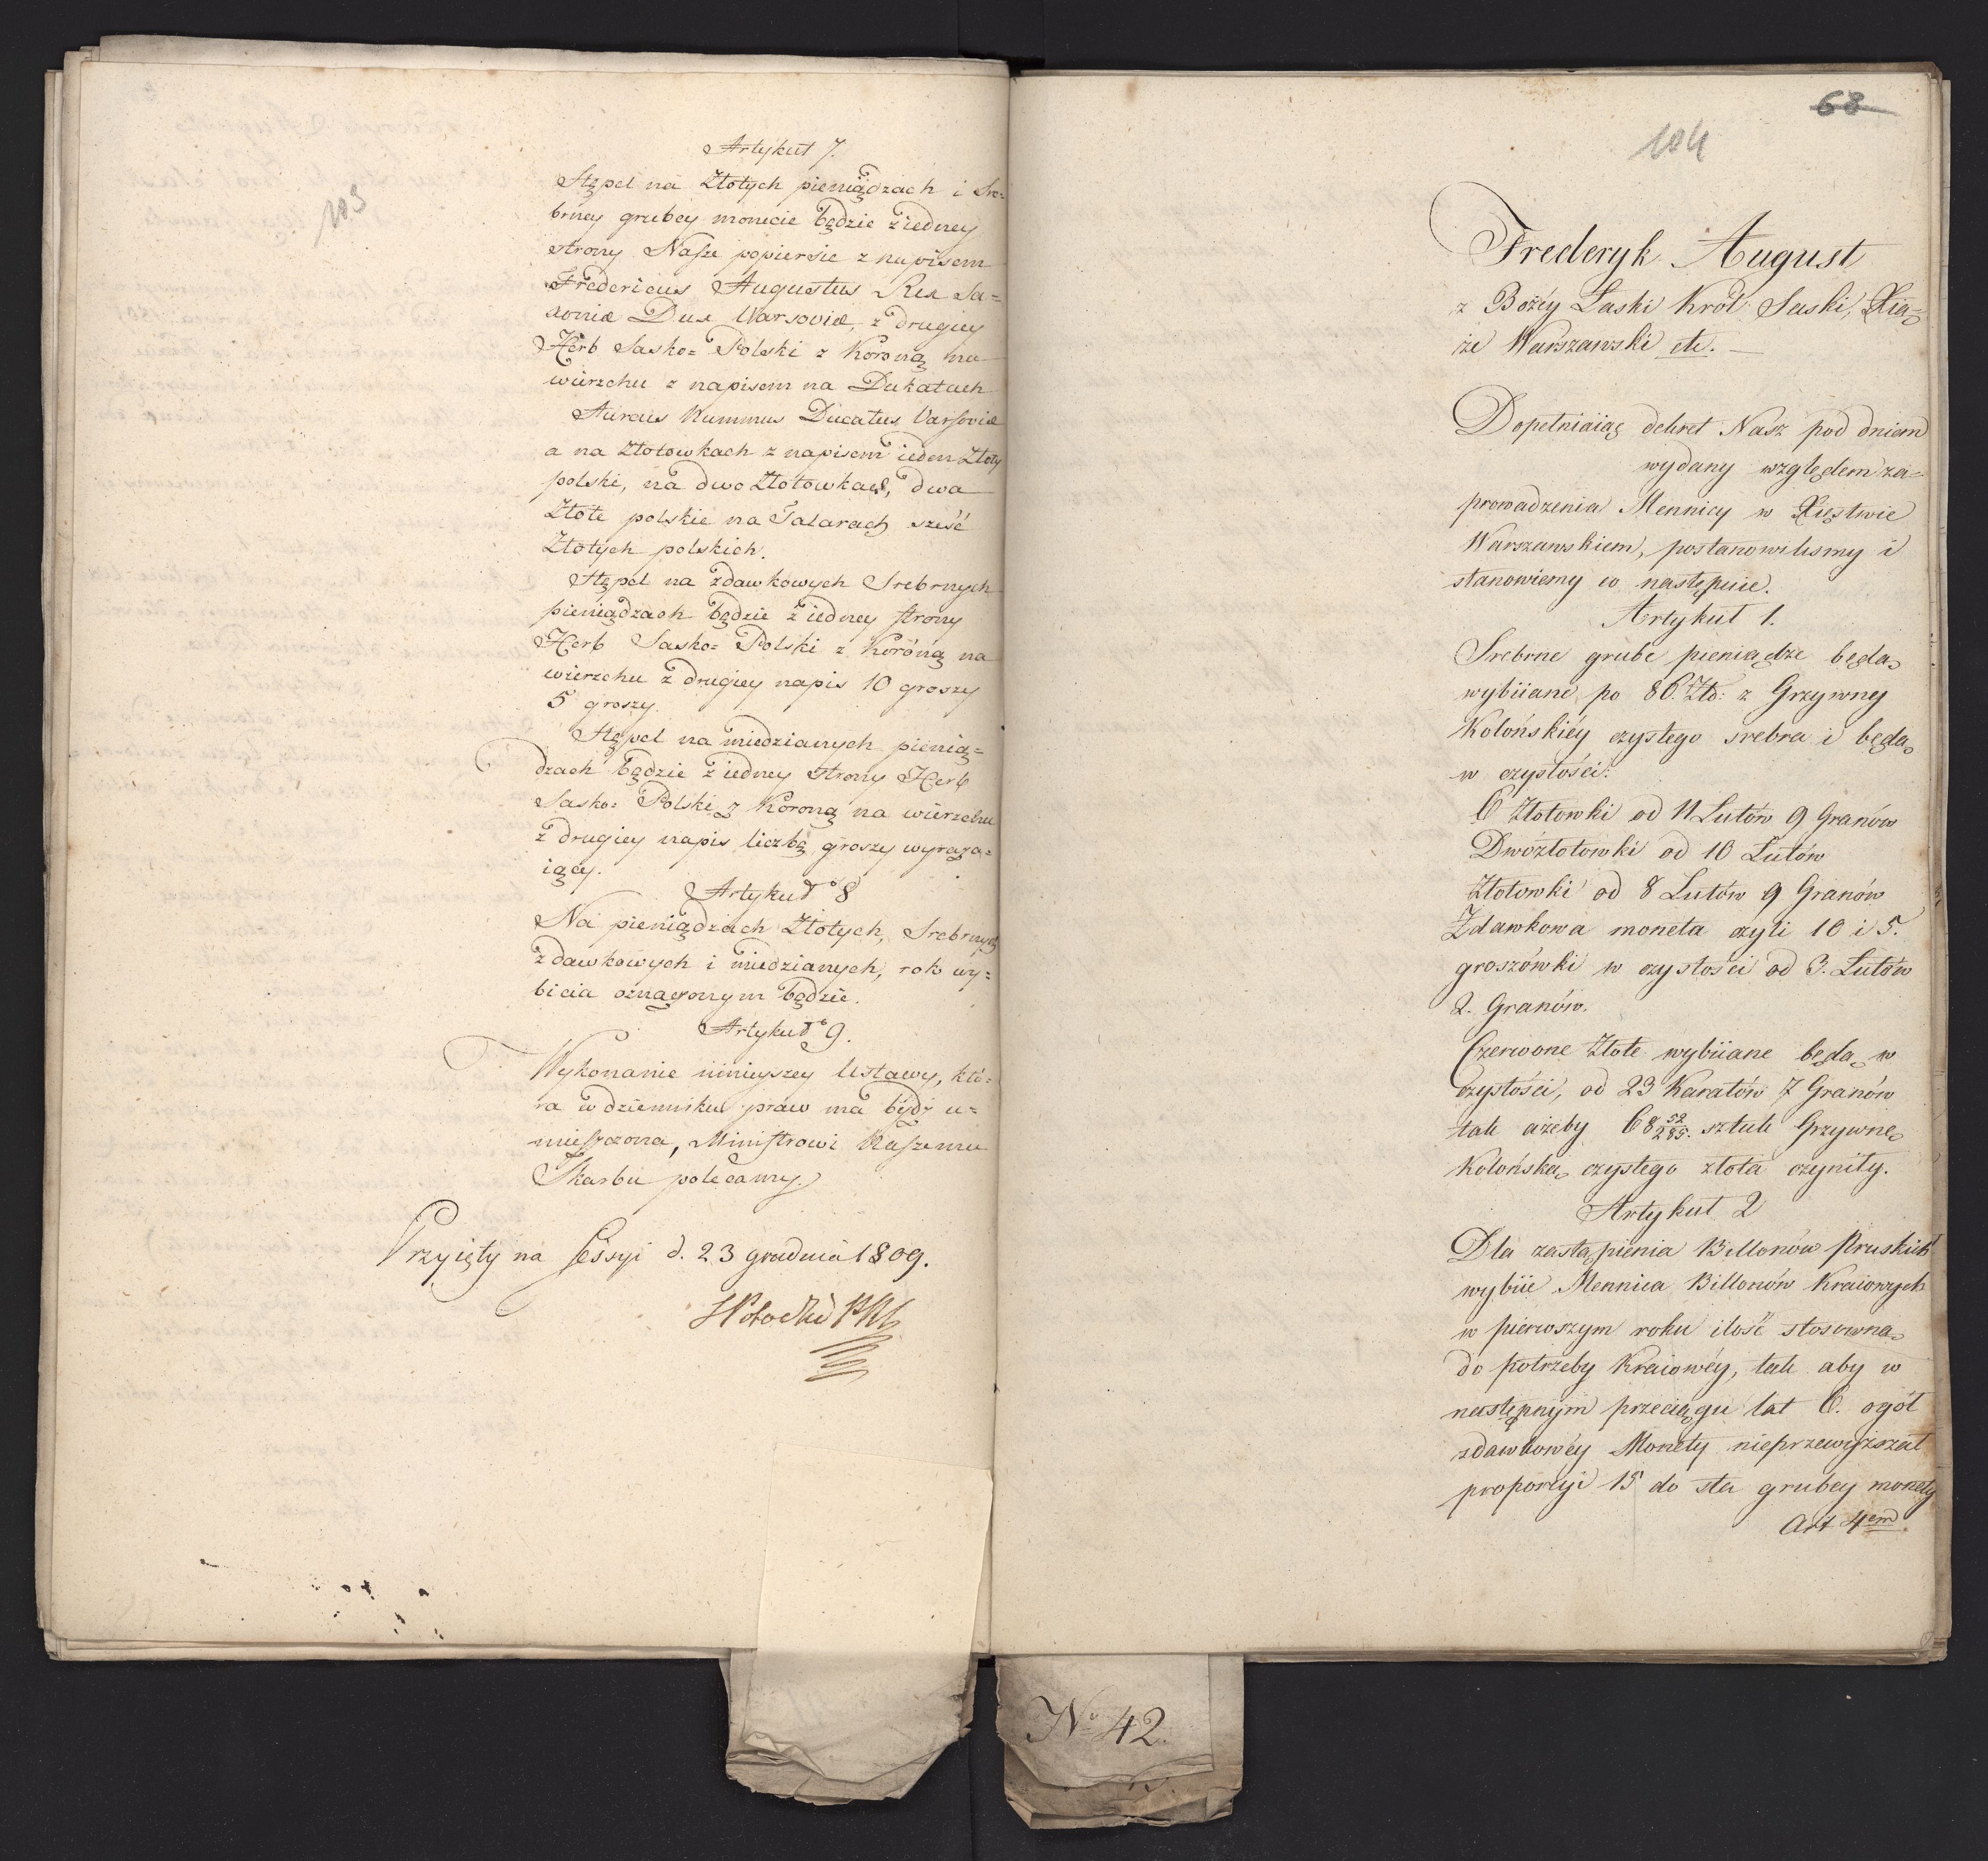 103
Artykuł 7.
Stępel na Złotych pieniądzach i Sre=
brney grubey monecie będzie z iedney
strony Nasze popiersie z napisem
Fredericus Augustus Rex Sa=
xoniæ Dux Warsoviæ, z drugiey
Herb Sasko= Polski z Koroną na
wierzchu z napisem na Dukatach
Aureus Nummus Ducatus Varsoviæ
a na Złotowkach z napisem ieden Złoty
polski, na dwo Złotowkach, dwa
Złote polskie na Talarach sześć
Złotych polskich.
Stępel na zdawkowych Srebrnych
pieniądzach będzie z iedney strony
Herb Sasko= Polski z Koroną na
wierzchu z drugiey napis 10 groszy
5 groszy.
Stępel na miedzianych pienią=
dzach będzie z iedney strony Herb
Sasko= Polski z Koroną na wierzchu
z drugiey napis liczbę groszy wyraża=
iący.
Artykuł 8
Na pieniądzach Złotych, Srebrnych
zdawkowych i miedzianych, rok wy=
bicia oznaczonym będzie.
Artykuł 9.
Wykonanie ninieyszey Ustawy, któ=
ra w dzienniku praw ma bydź u=
mieszczona, Ministrowi Naszemu
Skarbu polecamy.
Przyięty na Sessyi d. 23 grudnia 1809.
68
104
Frederyk August
z Bożéy Łaski Król Saski, Xią=
że Warszawski etc.
Dopełniaiąc dekret Nasz pod dniem
wydany względem za=
prowadzenia Mennicy w Xięstwie
Warszawskiem, postanowiliśmy i
stanowiemy co następuie.
Artykuł 1.
Srebrne grube pieniądze będą
wybiiane po 86. Złt: z Grzywny
Kolońskiéy czystego srebra i będą
w czystości:
6 Złotowki od 11 Lutów 9 Granów
Dwózłotowki od 10 Lutów
Złotowki od 8 Lutów 9 Granów
Zdawkowa moneta czyli 10 i 5.
groszówki w czystości od 3. Lutów
2. Granów.
Czerwone Złote wybiiane będą w
czystości, od 23 Karatów 7 Granów
tak ażeby 68 52/285. sztuk Grzywnę
Kolońską czystego złota czyniły.
Artykuł 2
Dla zastąpienia Billonów Pruskich
wybiie Mennica Billonów Kraiowych
w pierwszym roku ilość stosowną
do potrzeby Kraiowéy, tak aby w
następnym przeciągu lat 6. ogół
zdawkowéy Monety nieprzewyższał
proporcyi 15 do sta grubey monety
Art 4em.
No 42.